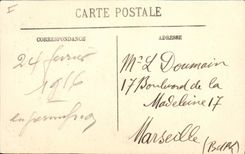 CARTE POSTALE
CORRESPONDANCE
ADRESSE
24 février
1916
Mr L Doumain
17 Boulevard de la
Madeleine 17
Marseille
(BdR)